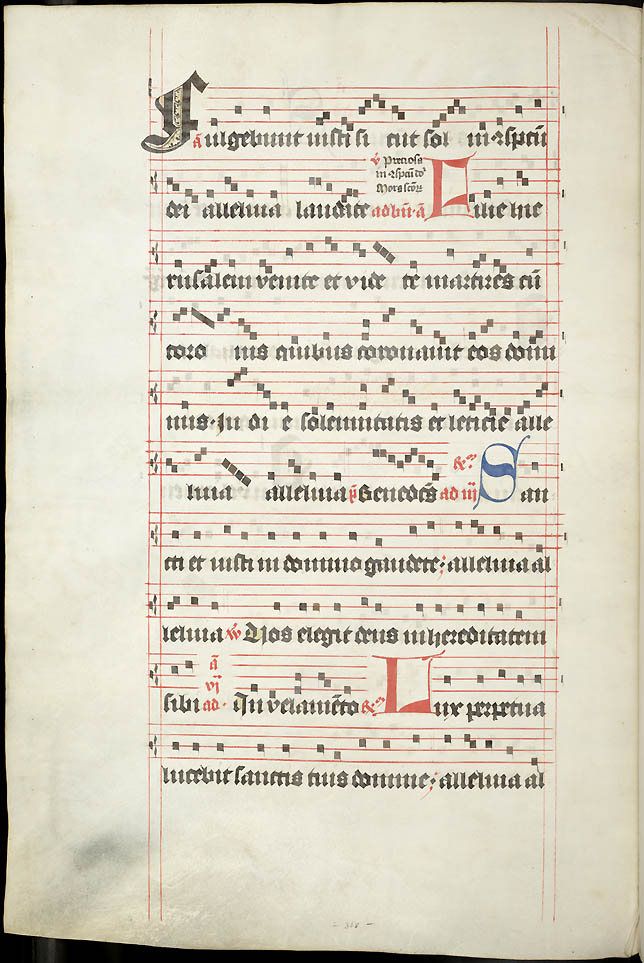 Fulgebunt iusti si cut sol in ꝯspectu
dei alleluia laudate ad bñ· añ
℣ Preciosa
in ꝯspectu dñi
Mors sctor̄
Filie hie
rusalem venite et vide te martires cū
coro nis quibus coronauit eos domi
nus· In di e solennitatis et leticie alle
luia alleluia p̄s Benedcūs ad iij San
cti et iusti in domino gaudete; alleluia al
leluia ℣ Uos elegit deus in hereditatem
sibi ad· vj añ In velamēto Lux perpetua
lucebit sanctis tuis domine; alleluia al